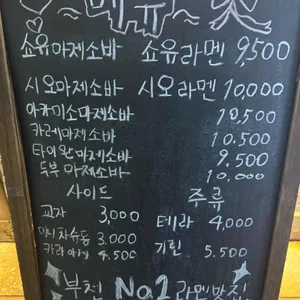 메뉴
쇼유마제소바 쇼유라멘 9,500
시오마제소바 시오라멘 10,000
아카미소마제소바 10,500
카레마제소바 10.500
타이완마제소바 9.500
두부마제소바 10,000
사이드 주류
교자 3,000 테라 4,000
아시차슈동 3.000 기린 5.500
카라아게 4.500
부천 No.1 라멘맛집